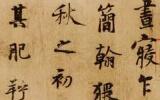 晝寢乍
簡翰猥
秋之初
其肥羜